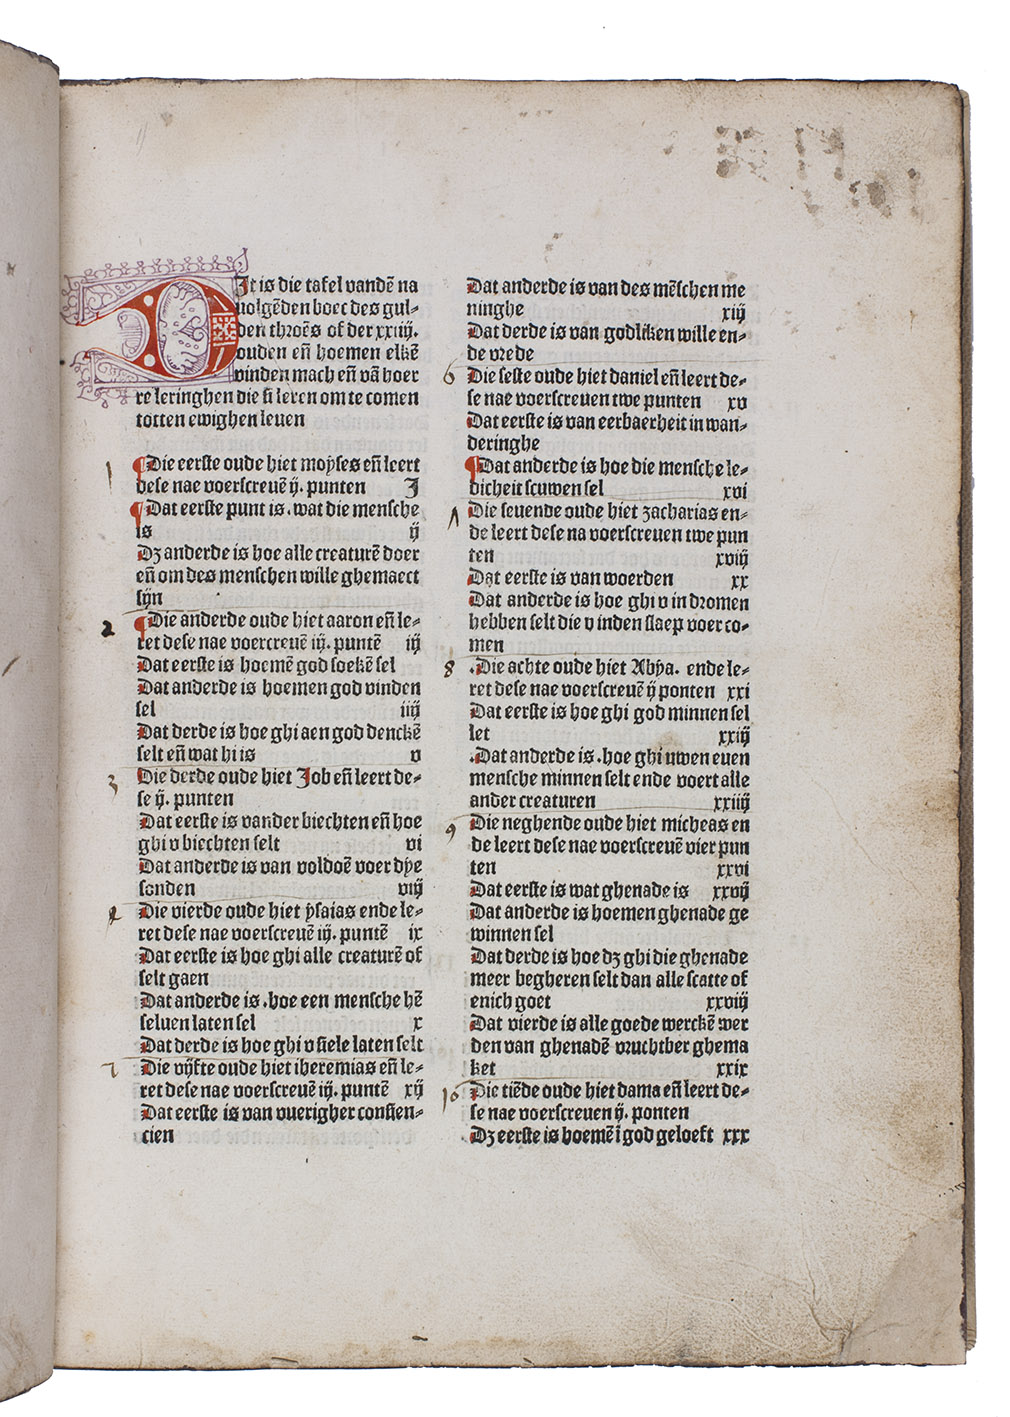 DIt is die tafel vandē na
uolgēden boec des gul-
den throēs of der xxiiij.
ouden eñ hoemen elkē
vinden mach eñ vā hoer
re leringhen die si leren om te comen
totten ewighen leuen
1 ¶Die eerste oude hiet moyses eñ leert
dese nae voerscreuē ij. punten I
¶Dat eerste punt is. wat die mensche
is ij
Dz anderde is hoe alle creaturē doer
eñ om des menschen wille ghemaect
sijn
2 ¶Die anderde oude hiet aaron eñ le-
ret dese nae voercreuē iij. puntē iij
Dat eerste is hoemē god soekē sel
Dat anderde is hoemen god vinden
sel iiij
Dat derde is hoe ghi aen god denckē
selt eñ wat hi is v
3 Die derde oude hiet Job eñ leert de-
se ij. punten
Dat eerste is vander biechten eñ hoe
ghi v biechten selt vi
Dat anderde is van voldoē voer dye
sonden viij
4 Die vierde oude hiet ysaias ende le-
ret dese nae voerscreuē iij. puntē ix
Dat eerste is hoe ghi alle creaturē of
selt gaen
Dat anderde is .hoe een mensche hē
seluen laten sel x
Dat derde is hoe ghi v siele laten selt
5 Die vijfte oude hiet iheremias eñ le-
ret dese nae voerscreuē iij. puntē xij
Dat eerste is van vuerigher consien-
cien
Dat anderde is van des mēschen me
ninghe xiij
Dat derde is van godliken wille en-
de vrede
6 Die seste oude hiet daniel eñ leert de-
se nae voerscreuen twe punten xv
Dat eerste is van eerbaerheit in wan-
deringhe
¶Dat anderde is hoe die mensche le-
dicheit scuwen sel xvi
7 Die seuende oude hiet zacharias en-
de leert dese na voerscreuen twe pun
ten xviij
Dat eerste is van woerden xx
Dat anderde is hoe ghi v in dromen
hebben selt die v inden slaep voer co-
men
8 .Die achte oude hiet Abya. ende le-
ret dese nae voerscreuē ij ponten xxi
Dat eerste is hoe ghi god minnen sel
let xxiij
.Dat anderde is .hoe ghi uwen euen
mensche minnen selt ende voert alle
ander creaturen xxiiij
9 Die neghende oude hiet micheas en
de leert dese nae voerscreuē vier pun
ten xxvi
Dat eerste is wat ghenade is xxvij
Dat anderde is hoemen ghenade ge
winnen sel
Dat derde is hoe dz ghi die ghenade
meer begheren selt dan alle scatte of
enich goet xxviij
Dat vierde is alle goede werckē wer
den van ghenadē vruchtber ghema
ket xxix
10 Die tiēde oude hiet dama eñ leert de-
se nae voerscreuen ij. ponten
.Dz eerste is hoemē ī god geloeft xxx